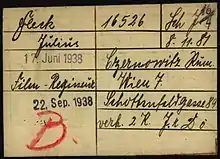 Fleck 16526 Sch. Jude
Julius 8. 11. 81
17. Juni 1938 Czernowitz Rum.
Film-Regisseur Wien 7.
22. Sep. 1938 Schottenfeldgasse 8
verh. 2 K.